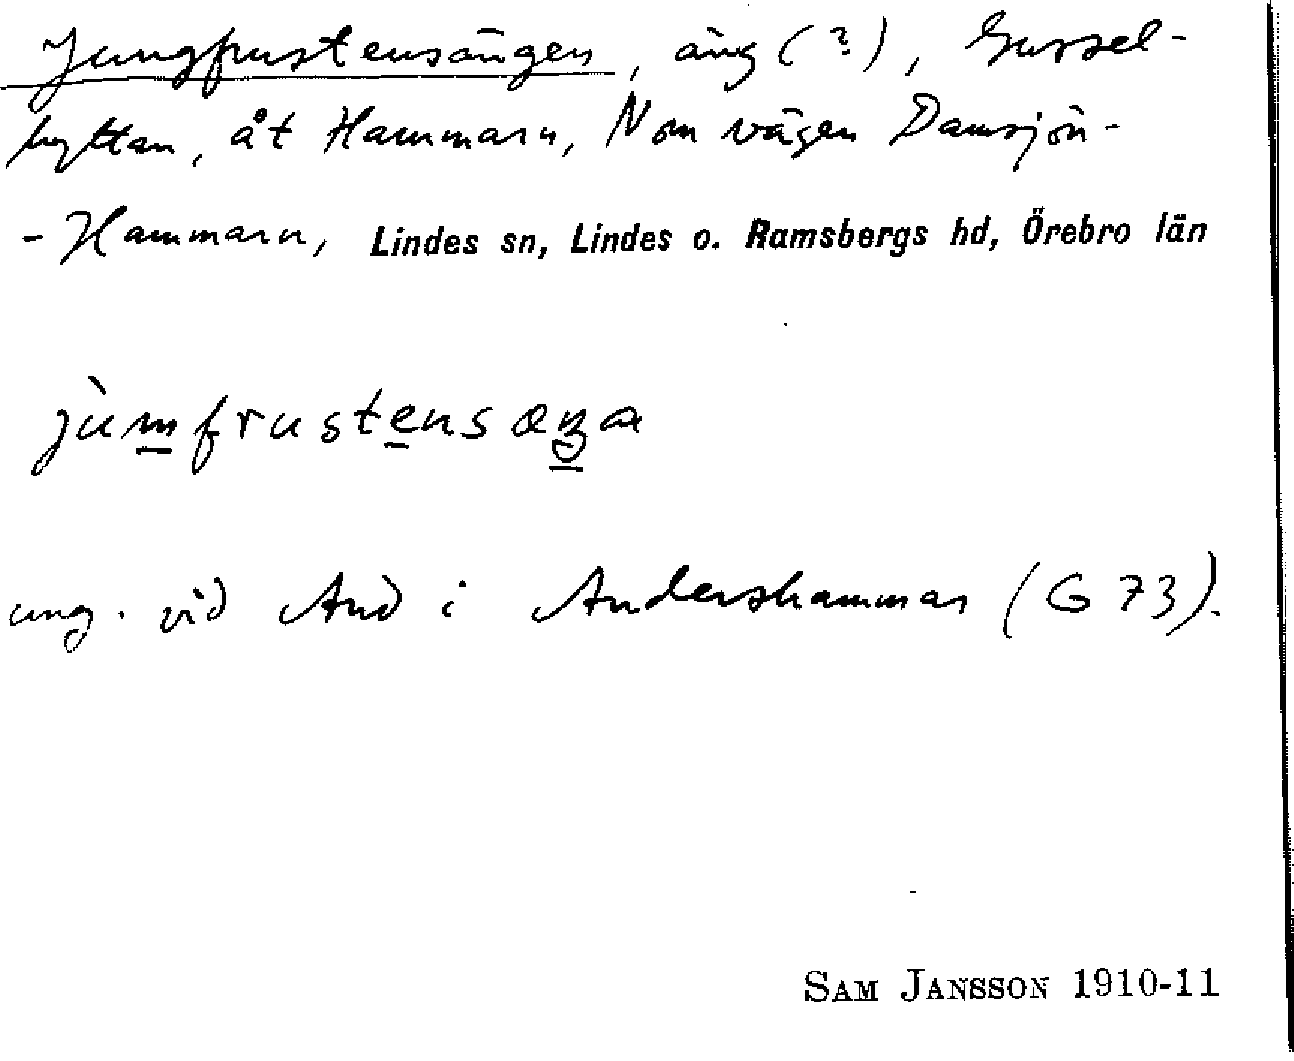 Jungfrustensängen, äng (?), Gussel-
hyttan, åt Hammarn, N om vägen Damsjön-
- Hammarn, Lindes sn, Lindes o. Ramsbergs hd, Örebro län
jùmfrustensæŋa
ung. vid And i Andershammar (G 73).
SAM JANSSON 1910-11